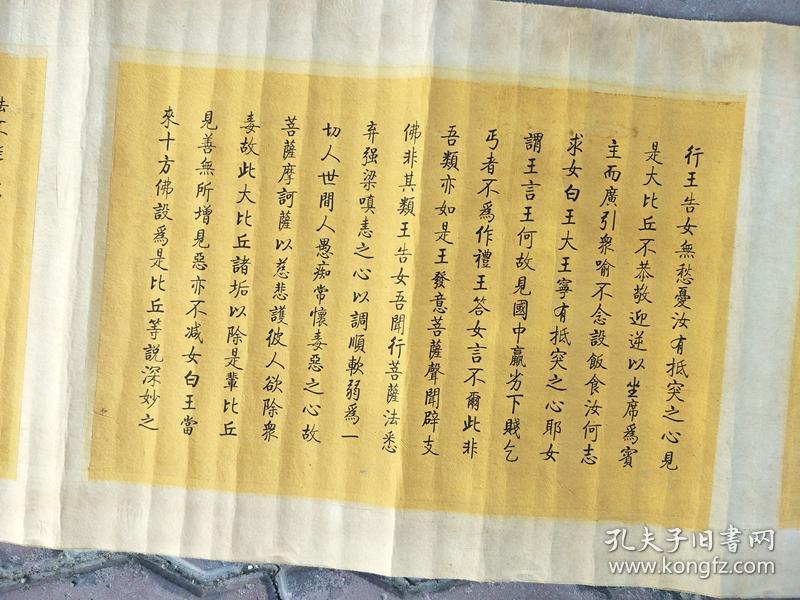 行王告女無愁憂汝有抵突之心見
是大比丘不恭敬迎逆以坐席為賓
主而廣引衆喻不念設飯食汝何志
求女白王大王寧有抵突之心耶女
謂王言王何故見國中羸劣下賤乞
丐者不為作禮王答女言不爾此非
吾類亦如是王發意菩薩聲聞辟支
佛非其類王告女吾聞行菩薩法悉
弃强梁嗔恚之心以調順軟弱為一
切人世間人愚痴常懷毒惡之心故
菩薩摩訶薩以慈悲護彼人欲除衆
毒故此大比丘諸垢以除是輩比丘
見善無所增見惡亦不减女白王當
來十方佛設為是比丘等説深妙之
法
孔夫子旧书网
www.kongfz.com